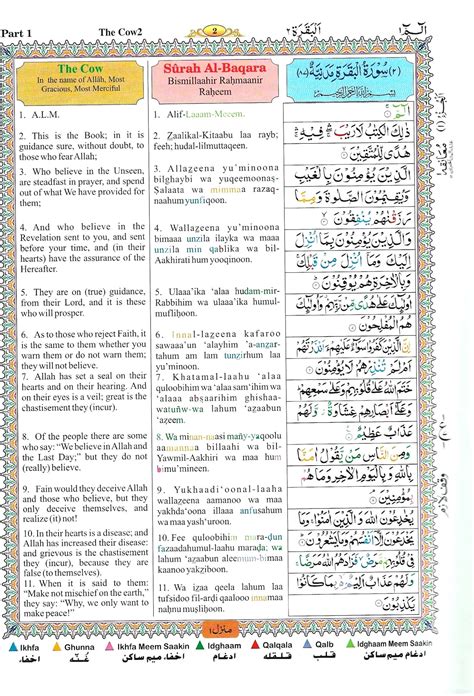 Part 1
The Cow2
2
البقرة ٢
الٓمٓ ١
The Cow
In the name of Allâh, Most
Gracious, Most Merciful
1. A.L.M.
2. This is the Book; in it is
guidance sure, without doubt, to
those who fear Allah;
3. Who believe in the Unseen,
are steadfast in prayer, and spend
out of what We have provided for
them;
4. And who believe in the
Revelation sent to you, and sent
before your time, and (in their
hearts) have the assurance of the
Hereafter.
5. They are on (true) guidance,
from their Lord, and it is these
who will prosper.
6. As to those who reject Faith, it
is the same to them whether you
warn them or do not warn them;
they will not believe.
7. Allah has set a seal on their
hearts and on their hearing. And
on their eyes is a veil; great is the
chastisement they (incur).
8. Of the people there are some
who say: "We believe in Allah and
the Last Day;" but they do not
(really) believe.
9. Fain would they deceive Allah
and those who believe, but they
only deceive themselves, and
realize (it) not!
10. In their hearts is a disease; and
Allah has increased their disease:
and grievous is the chastisement
they (incur), because they are
false (to themselves).
11. When it is said to them:
"Make not mischief on the earth,"
they say: "Why, we only want to
make peace!"
Sûrah Al-Baqara
Bismillaahir Raḥmaanir
Raḥeem
1. Alif-Laaam-Meeem.
2. Ẕaalikal-Kitaabu laa rayb;
feeh; hudal-lilmuttaqeen.
3. Allaẕeena yu'minoona
bilghaybi wa yuqeemoonaṣ-
Ṣalaata wa mimmaa razaq-
naahum yunfiqoon.
4. Wallaẕeena yu'minoona
bimaaa unzila ilayka wa maaa
unzila min qablika wa bil-
Aakhirati hum yooqinoon.
5. Ulaaa'ika 'alaa hudam-mir-
Rabbihim wa ulaaa'ika humul-
mufliḥoon.
6. Innal-laẕeena kafaroo
sawaaa'un 'alayhim 'a-anẕar-
tahum am lam tunẕirhum laa
yu'minoon.
7. Khatamal-laahu 'alaa
quloobihim wa 'alaa sam'ihim wa
'alaaa abṣaarihim ghishaa-
watuñw-wa lahum 'aẕaabun
'aẓeem.
8. Wa minan-naasi mañy-yaqoolu
aamannaa billaahi wa bil-
Yawmil-Aakhiri wa maa hum
bimu'mineen.
9. Yukhaadi'oonal-laaha
wallaẕeena aamanoo wa maa
yakhda'oona illaaa anfusahum
wa maa yash'uroon.
10. Fee quloobihim mara-ḍun
fazaadahumul-laahu maraḍa; wa
lahum 'aẕaabun aleemum-bimaa
kaanoo yakẕiboon.
11. Wa iẕaa qeela lahum laa
tufsidoo fil-arḍi qaalooo innamaa
naḥnu muṣliḥoon.
الٓمّٓ
ذٰلِكَ الْكِتٰبُ لَارَيْبَ فِيْهِ
هُدًى لِّلْمُتَّقِيْنَ
الَّذِيْنَ يُؤْمِنُوْنَ بِالْغَيْبِ
وَيُقِيْمُوْنَ الصَّلٰوةَ وَمِمَّا
رَزَقْنٰهُمْ يُنْفِقُوْنَ
وَالَّذِيْنَ يُؤْمِنُوْنَ بِمَآ اُنْزِلَ
اِلَيْكَ وَمَآ اُنْزِلَ مِنْ قَبْلِكَ
وَبِالْاٰخِرَةِ هُمْ يُوْقِنُوْنَ
اُولٰٓئِكَ عَلٰى هُدًى مِّنْ رَّبِّهِمْ وَ
اُولٰٓئِكَ هُمُ الْمُفْلِحُوْنَ
سَوَآءٌ عَلَيْهِمْ ءَاَنْذَرْتَهُمْ
اَمْ لَمْ تُنْذِرْهُمْ لَا يُؤْمِنُوْنَ
خَتَمَ اللّٰهُ عَلٰى قُلُوْبِهِمْ وَعَلٰى سَمْعِهِمْ
وَعَلٰٓى اَبْصَارِهِمْ غِشَاوَةٌ وَّلَهُمْ
عَذَابٌ عَظِيْمٌ
وَمِنَ النَّاسِ مَنْ يَّقُوْلُ اٰمَنَّا
بِاللّٰهِ وَبِالْيَوْمِ الْاٰخِرِ وَمَا هُمْ
بِمُؤْمِنِيْنَ
يُخٰدِعُوْنَ اللّٰهَ وَالَّذِيْنَ اٰمَنُوْا وَمَا
يَخْدَعُوْنَ اِلَّآ اَنْفُسَهُمْ وَمَا يَشْعُرُوْنَ
فِيْ قُلُوْبِهِمْ مَّرَضٌ فَزَادَهُمُ اللّٰهُ مَرَضًا
وَلَهُمْ عَذَابٌ اَلِيْمٌ بِمَا كَانُوْا
يَكْذِبُوْنَ
منزل ١
Ikhfa
Ghunna
Ikhfa Meem Saakin
Idghaam
Qalqala
Qalb
Idghaam Meem Saakin
اخفاء
غُنّه
اخفاء میم ساکن
ادغام
قلقله
قلب
ادغام میم ساکن